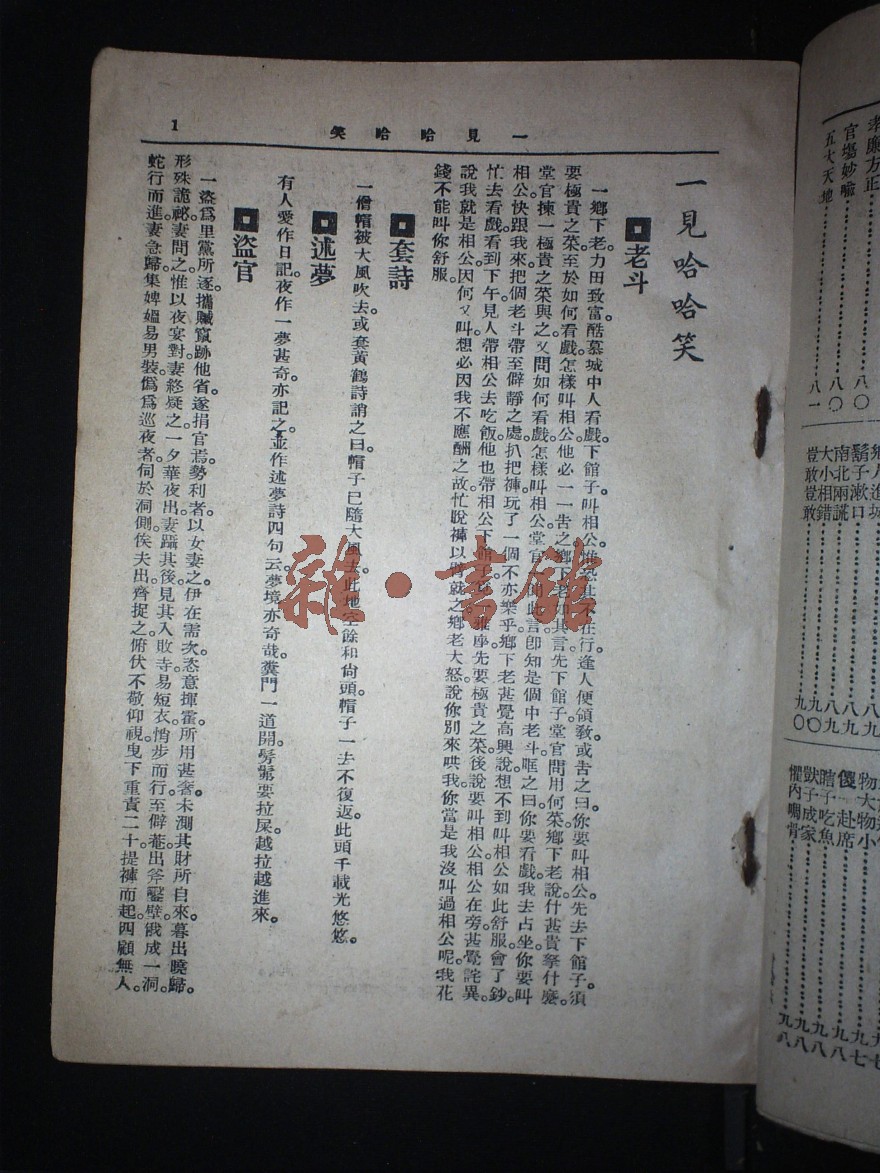 一見哈哈笑
1
一見哈哈笑
老斗
一鄉下老力田致富酷慕城中人看戲下館子叫相公惟恐其不在行逢人便領教或告之曰你要叫相公先去下館子須
要極貴之菜至於如何看戲怎樣叫相公他必一一告之鄉下老如其言先下館子堂官問用何菜鄉下老說什甚貴拏什麽
堂官揀一極貴之菜與之又問如何看戲怎樣叫相公堂官聞此言卽知是個中老斗哐之曰你要看戲我去占坐你要叫
相公快跟我來把個老斗帶至僻靜之處扒把褲玩了一個不亦樂乎鄉下老甚覺高興說想不到叫相公如此舒服會了鈔
忙去看戲看到下午見人帶相公去吃飯他也帶相公下館子雅座先要極貴之菜後說要叫相公相公在旁甚覺詫異
說我就是相公因何又叫想必因我不應酬之故忙脫褲以臀就之鄉老大怒說你別來哄我你當是我沒叫過相公呢我花
錢不能叫你舒服
套詩
一僧帽被大風吹去。或套黃鶴詩誚之曰。帽子已隨大風去。此地空餘和尙頭。帽子一去不復返。此頭千載光悠悠。
述夢
有人愛作日記。夜作一夢甚奇。亦記之。並作述夢詩四句云。夢境亦奇哉。糞門一道開。旁鼈要拉屎。越拉越進來。
盜官
一盜爲里黨所逐。攜贓竄跡他省。遂捐官焉。勢利者以女妻之。伊在需次。恣意揮霍。所用甚奢。未測其財所自來。暮出曉歸。
形殊詭祕。妻問之。惟以夜宴對。妻終疑之。一夕華夜出。妻躡其後。見其入敗寺。易短衣。悄步而行。至僻菴。出斧鑿壁。俄成一洞。
蛇行而進。妻急歸。集婢媼易男裝。僞爲巡夜者。伺於洞側。俟夫出。齊捉之。俯伏不敬仰視。曳下重責二十。提褲而起。四顧無人。
孝廉方正
官塲妙喩 八〇
五大天地 八一
鬍子漱口 八九
南北兩謊 八九
大小相錯 九〇
豈敢豈敢 九〇
物大物小 九七
儍子赴席 九八
瞎子吃魚 九八
獃子成家 九八
懼內啯骨 九八
雜·書館